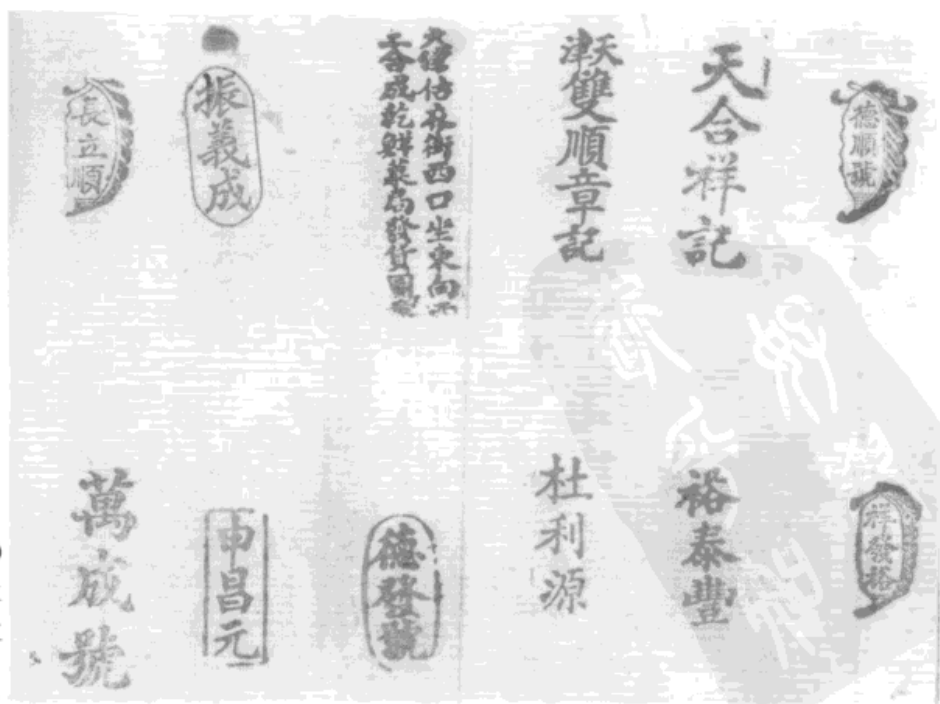 德順號
天合祥記
天津雙順章記
街西口坐東向
成乾鮮菓局發貨圖
振義成
長立順
祥發裕
裕泰豐
杜利源
德發號
申昌元
萬成號